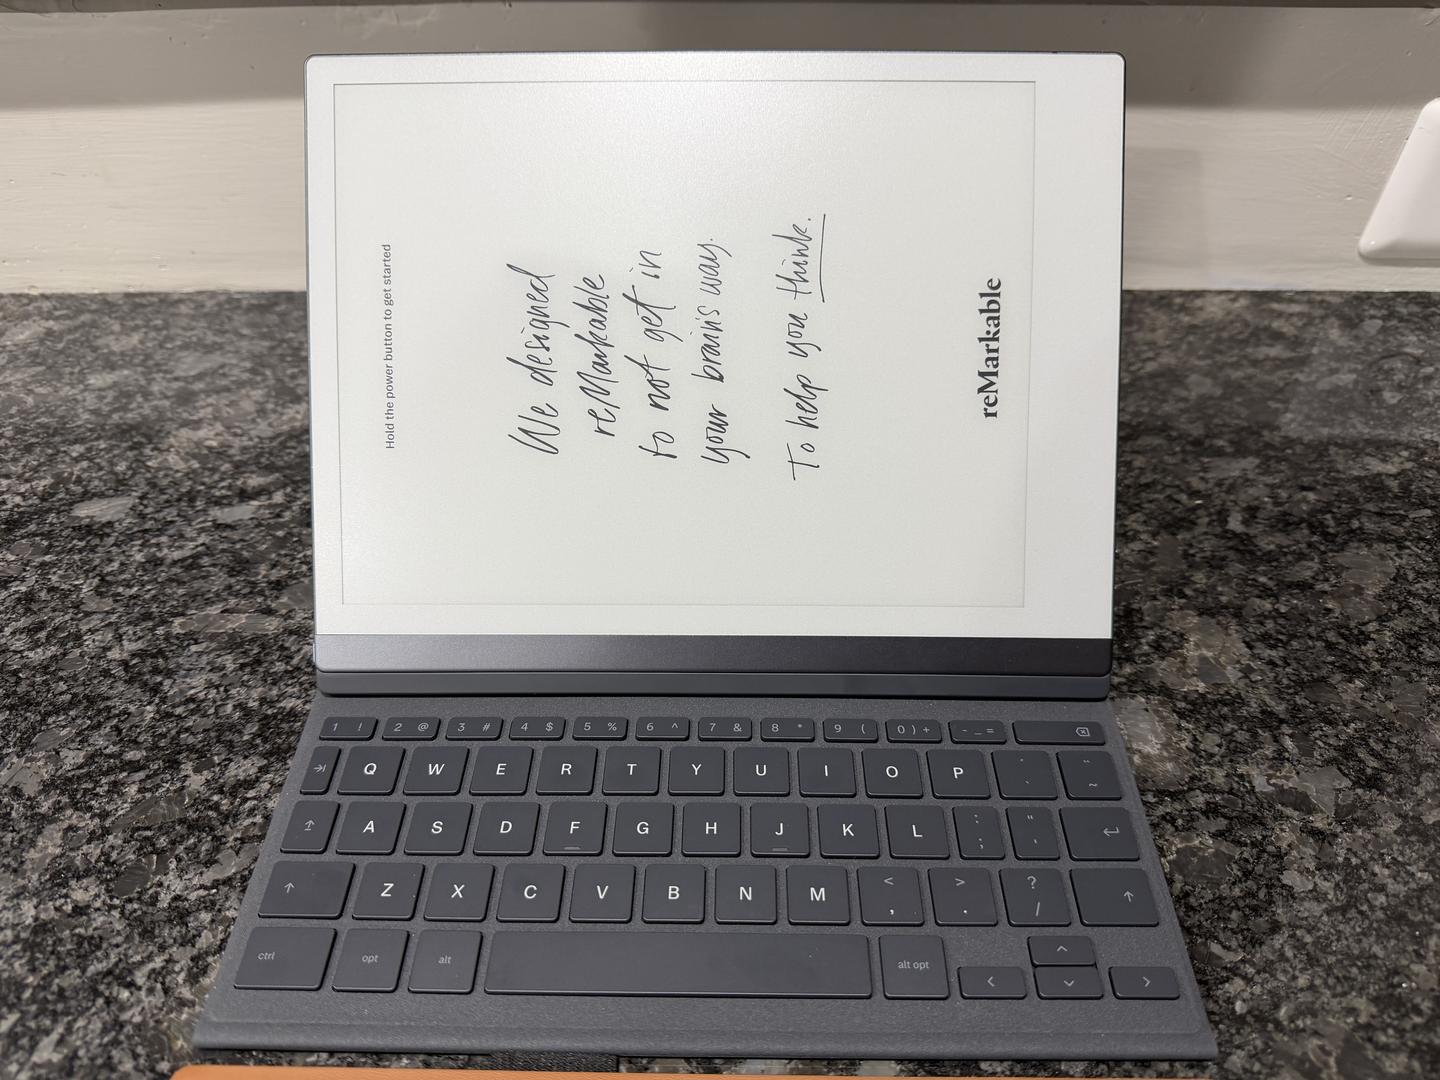 Hold the power button to get started
We designed
reMarkable
to not get in
your brain's way.
To help you think.
reMarkable
1 ! 2 @ 3 # 4 $ 5 % 6 ^ 7 & 8 * 9 ( 0 ) + - _ =
Q W E R T Y U I O P ~
A S D F G H J K L : ; " '
Z X C V B N M < , > . ? /
ctrl opt alt alt opt